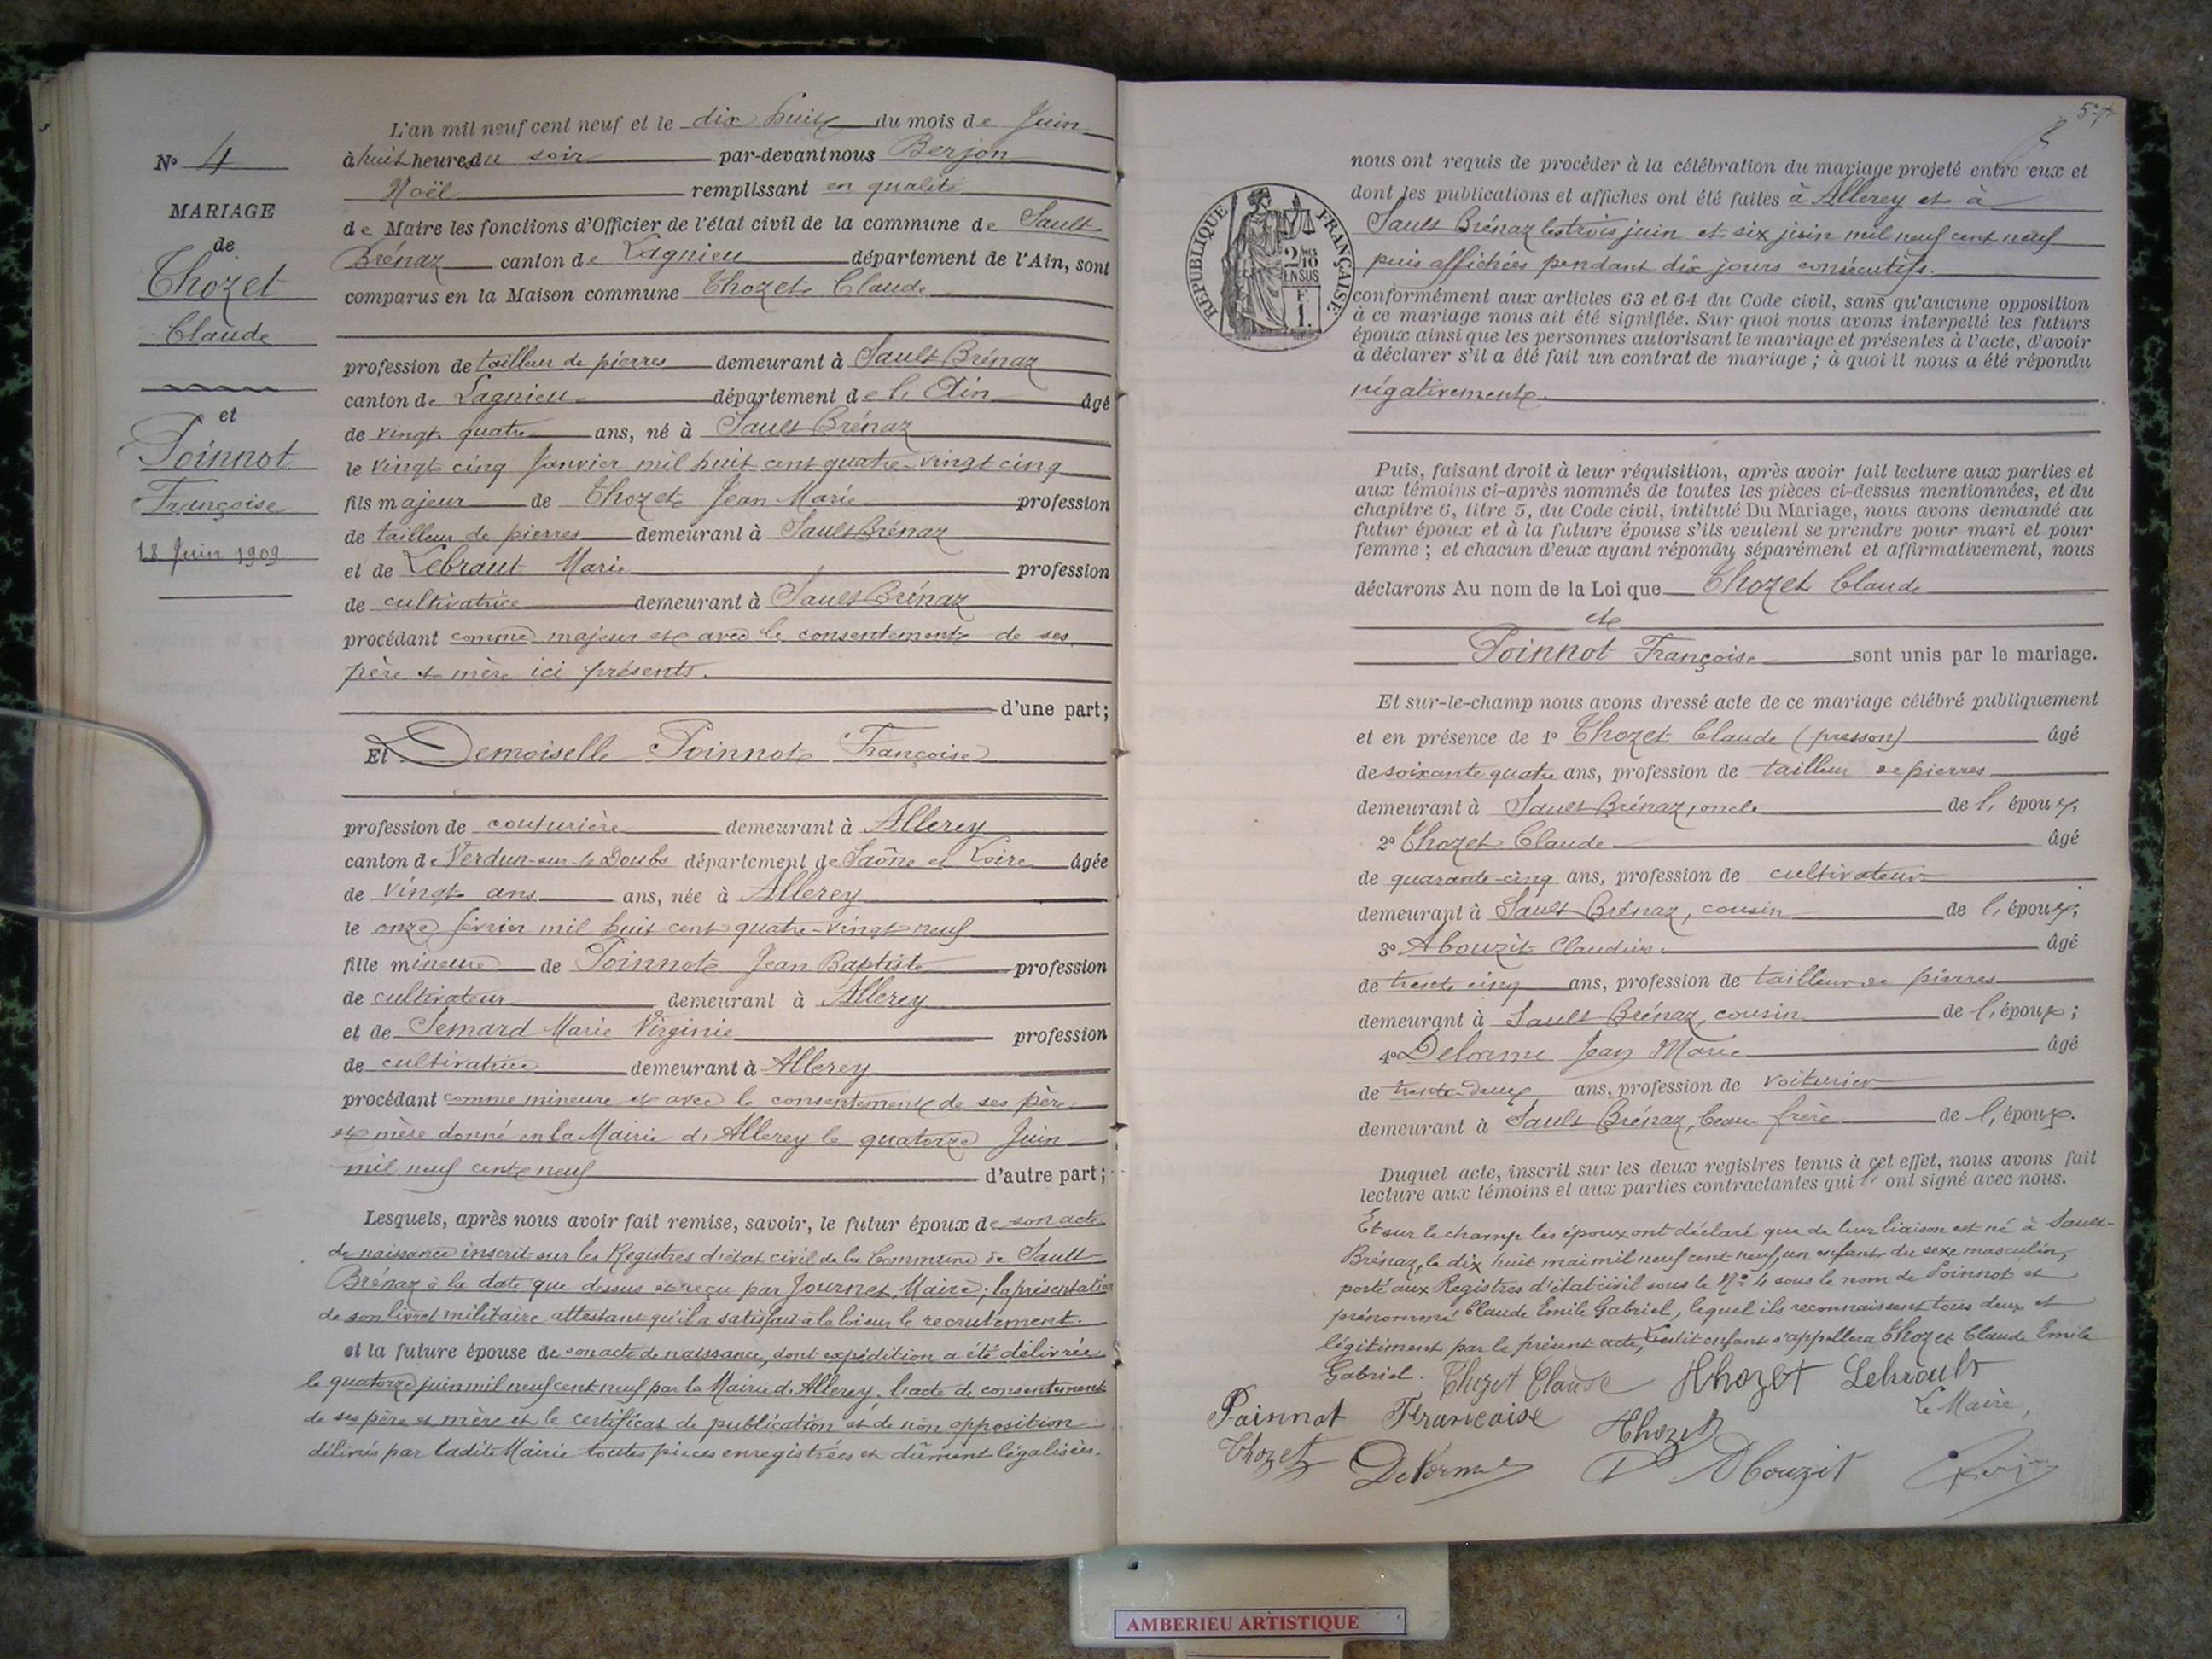 N° 4
MARIAGE
de
Thozet
Claude
et
Poinnot
Françoise
18 Juin 1909
L'an mil neuf cent neuf et le dix huit du mois de Juin
à huit heures du soir par-devant nous Berjon
Noël remplissant en qualité
de Maire les fonctions d'Officier de l'état civil de la commune de Sault
Brénaz canton de Lagnieu département de l'Ain, sont
comparus en la Maison commune Thozet Claude
profession de tailleur de pierres demeurant à Sault Brénaz
canton de Lagnieu département de l'Ain âgé
de vingt quatre ans, né à Sault Brénaz
le vingt cinq Janvier mil huit cent quatre-vingt cinq
fils majeur de Thozet Jean Marie profession
de tailleur de pierres demeurant à Sault Brénaz
et de Lebraut Marie profession
de cultivatrice demeurant à Sault Brénaz
procédant comme majeur et avec le consentement de ses
père et mère ici présents.
d'une part;
Et Demoiselle Poinnot Françoise
profession de couturière demeurant à Allerey
canton de Verdun-sur-le Doubs département de Saône et Loire âgée
de vingt ans ans, née à Allerey
le onze février mil huit cent quatre-vingt neuf
fille mineure de Poinnot Jean Baptiste profession
de cultivateur demeurant à Allerey
et de Semard Marie Virginie profession
de cultivatrice demeurant à Allerey
procédant comme mineure et avec le consentement de ses père
et mère donné en la Mairie d'Allerey le quatorze Juin
mil neuf cent neuf d'autre part;
Lesquels, après nous avoir fait remise, savoir, le futur époux de son acte
de naissance inscrit sur les Registres d'état civil de la Commune de Sault
Brénaz à la date que dessus et reçu par Journet, Maire; la présentation
de son livret militaire attestant qu'il a satisfait à la loi sur le recrutement.
et la future épouse de son acte de naissance, dont expédition a été délivrée
le quatorze juin mil neuf cent neuf par la Mairie d'Allerey, l'acte de consentement
de ses père et mère et le certificat de publication et de non opposition
délivrés par ladite Mairie toutes pièces enregistrées et dûment légalisées.
57
nous ont requis de procéder à la célébration du mariage projeté entre eux et
dont les publications et affiches ont été faites à Allerey et à
Sault Brénaz les trois juin et six juin mil neuf cent neuf
puis affichées pendant dix jours consécutifs.
RÉPUBLIQUE FRANÇAISE
2/10
EN SUS
F.
1.
conformément aux articles 63 et 64 du Code civil, sans qu'aucune opposition
à ce mariage nous ait été signifiée. Sur quoi nous avons interpellé les futurs
époux ainsi que les personnes autorisant le mariage et présentes à l'acte, d'avoir
à déclarer s'il a été fait un contrat de mariage ; à quoi il nous a été répondu
négativement.
Puis, faisant droit à leur réquisition, après avoir fait lecture aux parties et
aux témoins ci-après nommés de toutes les pièces ci-dessus mentionnées, et du
chapitre 6, titre 5, du Code civil, intitulé Du Mariage, nous avons demandé au
futur époux et à la future épouse s'ils veulent se prendre pour mari et pour
femme ; et chacun d'eux ayant répondu séparément et affirmativement, nous
déclarons Au nom de la Loi que Thozet Claude
et
Poinnot Françoise sont unis par le mariage.
Et sur-le-champ nous avons dressé acte de ce mariage célébré publiquement
et en présence de 1° Thozet Claude (presson) âgé
de soixante quatre ans, profession de tailleur de pierres
demeurant à Sault Brénaz, oncle de l'époux;
2° Thozet Claude âgé
de quarante-cinq ans, profession de cultivateur
demeurant à Sault Brénaz, cousin de l'époux;
3° Abouzit Claudius âgé
de trente cinq ans, profession de tailleur de pierres
demeurant à Sault Brénaz, cousin de l'époux;
4° Delorme Jean Marie âgé
de trente-deux ans, profession de voiturier
demeurant à Sault Brénaz, beau-frère de l'époux.
Duquel acte, inscrit sur les deux registres tenus à cet effet, nous avons fait
lecture aux témoins et aux parties contractantes qui l' ont signé avec nous.
Et sur le champ les époux ont déclaré que de leur liaison est né à Sault-
Brénaz, le dix huit mai mil neuf cent neuf, un enfant du sexe masculin,
porté aux Registres d'état civil sous le N° 4 sous le nom de Poinnot et
prénommé Claude Emile Gabriel, lequel ils reconnaissent tous deux et
légitiment par le présent acte, Ledit enfant s'appellera Thozet Claude Emile
Gabriel. Thozet Claude Thozet Lebrault
Le Maire,
Poinnot Francoise Thozet
Thozet Delorme Abouzit Berjon
AMBERIEU ARTISTIQUE